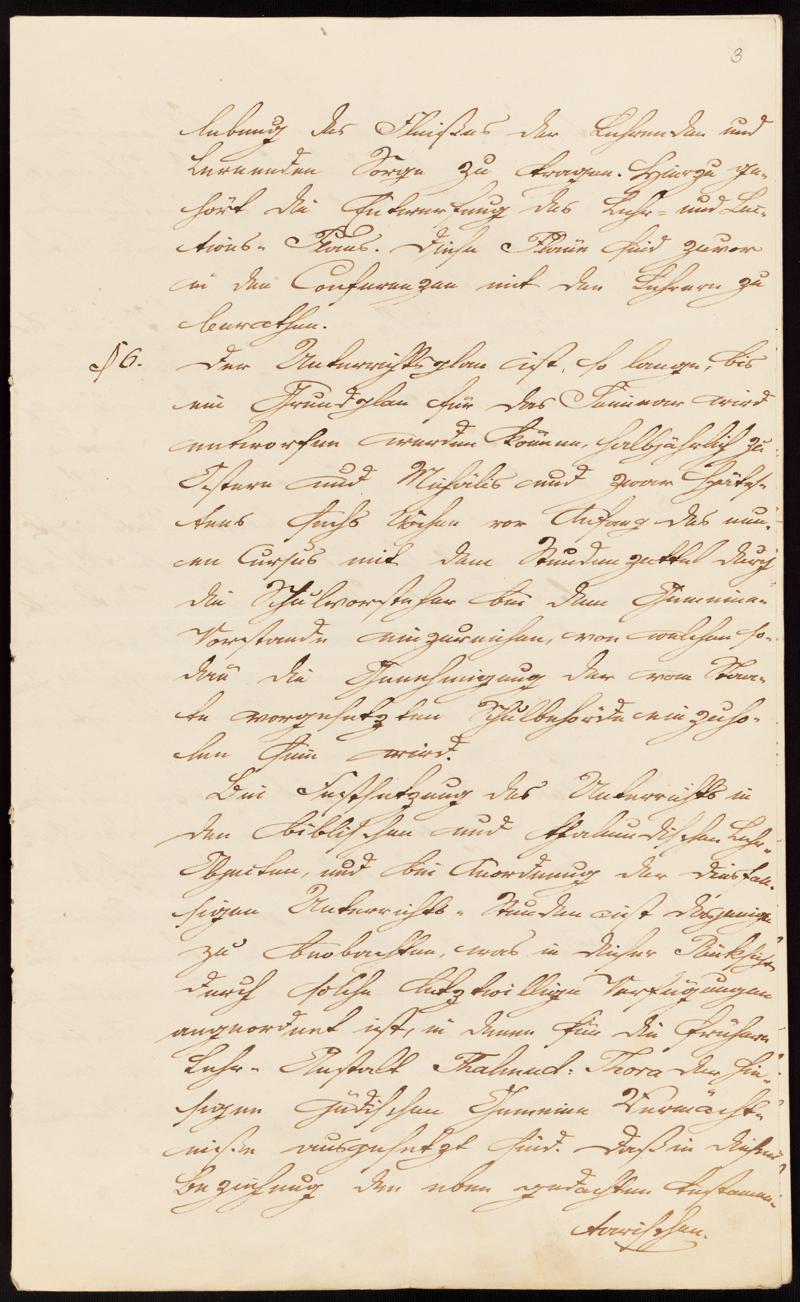 3
lebung des Fleißes der Lehrenden und
Lernenden Sorge zu tragen. Hierzu ge-
hört die Entwerfung des Lehr- und Lec-
tions-Plans. Diese Pläne sind zuvor
in den Conferenzen mit den Lehrern zu
berathen.
§ 6. Der Unterrichtsplan ist, so lange, bis
ein Grundplan für das Seminar wird
entworfen werden können, halbjährlich zu
Ostern und Michälis und zwar späte-
stens sechs Wochen vor Anfang des neu-
en Cursus mit dem Stundenzettel durch
die Schulvorsteher bei dem Gemeine-
Vorstande einzureichen, von welchem so-
dañ die Genehmigung der vom Staa-
te vorgesetzten Schulbehörde einzuho-
len sein wird.
Bei Festsetzung des Unterrichts in
den biblischen und thalmudischen Lehr-
Objecten, und bei Anordnung der dießfal-
sigen Unterrichts-Stunden ist dasjenige
zu beobachten, was in dieser Rücksicht
durch solche letztwillige Verfügungen
angeordnet ist, in denen für die frühere
Lehr-Anstalt Thalmud-Thora der hie-
sigen jüdischen Gemeine Vermächt-
nisse ausgesetzt sind. Daß in dieser
Beziehung den eben gedachten testamen-
tarischen